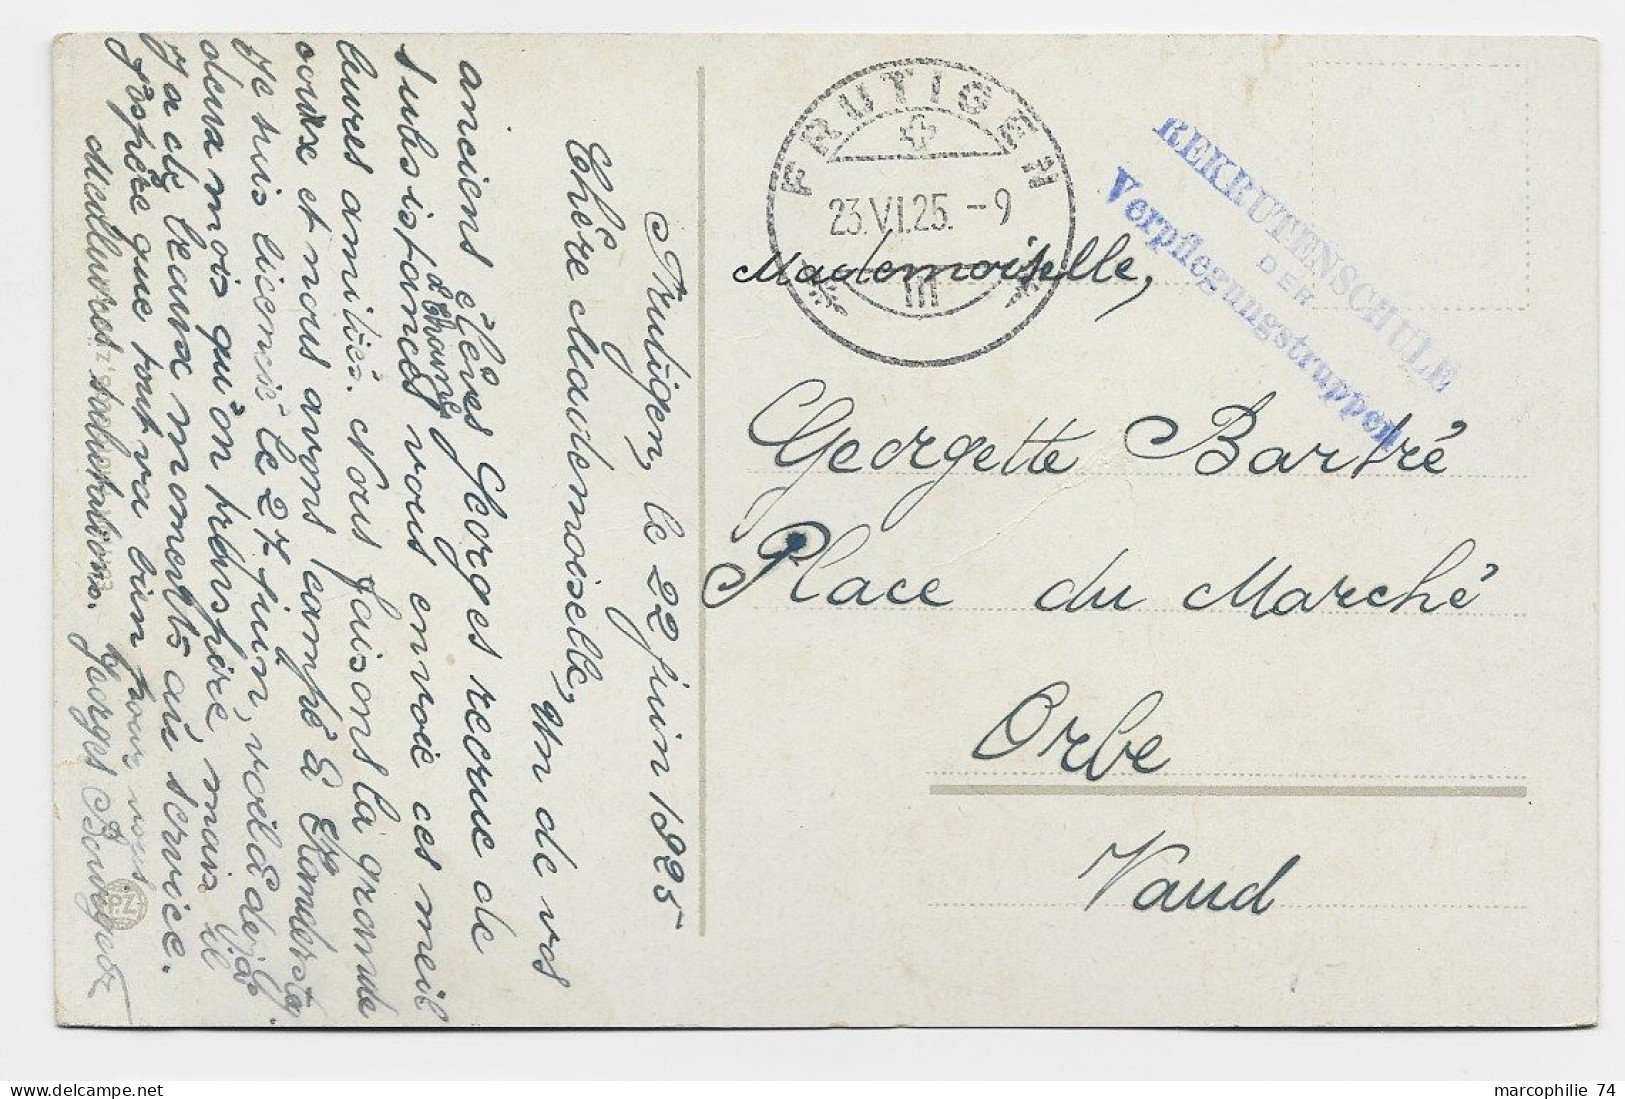 Frutigen, le 22 juin 1925
Chère Mademoiselle,
Un de vos
anciens élèves Georges recrue de
subsistances vous envoie ces meil
leures amitiés. Nous faisons la grande
course et nous avons campé à Kandersteg.
Je suis licencié le 27 juin, voilà déjà
deux mois qu'on transpire, mais il
y a de beaux moments au service.
J'espère que tout va bien pour vous
Meilleures salutations. Georges
P.Z
FRUTIGEN
23.VI.25.-9
III
REKRUTENSCHULE
DER
Verpflegungstruppen
Mademoiselle,
Georgette Barbé
Place du Marché
Orbe
Vaud
marcophilie 74